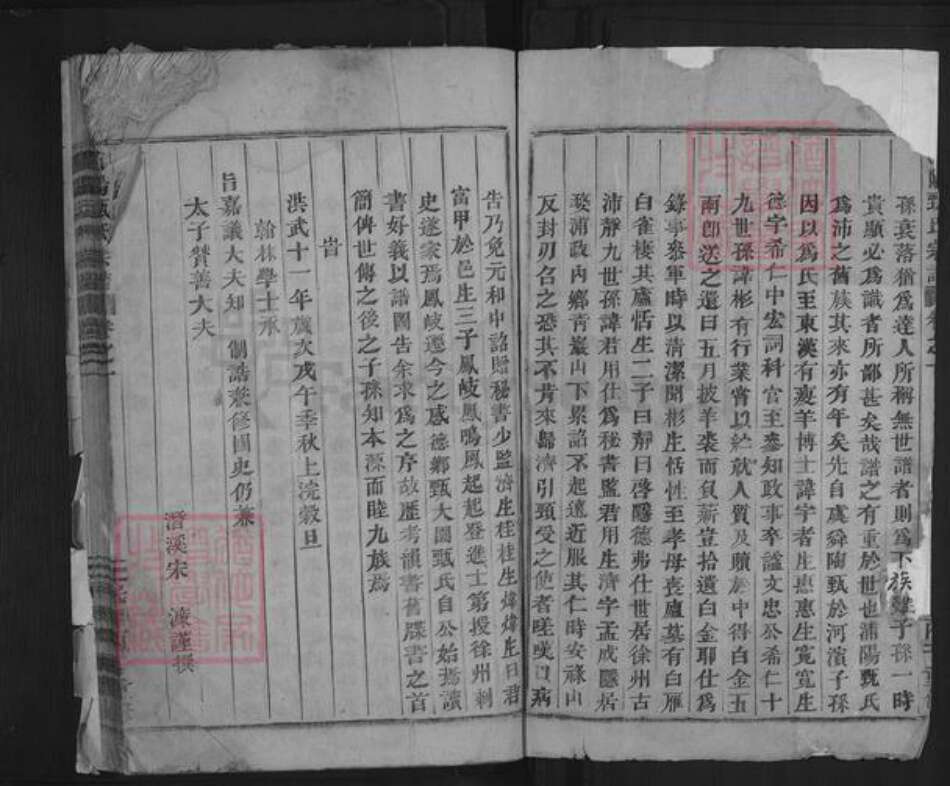 孫衰落猶為達人所稱無世譜者則為下族雖子孫一時
貴顯必為識者所鄙甚矣哉譜之有重於世也浦陽甄氏
為沛之舊族其來亦有年矣先自虞舜陶甄於河濱子孫
因以為氏至東漢有瘦羊博士諱宇者生惠惠生寬寬生
字希仁中宏詞科官至參知政事卒諡文忠公希仁十
九世孫諱彬有行業甞以紵就人質及贖於中得白金五
兩即送之還曰五月披羊裘而負薪豈拾遺白金耶仕為
錄事參軍時以清潔聞彬生恬性至孝母喪廬墓有白雁
白雀棲其廬恬生二子曰靜曰啓隱德弗仕世居徐州古
沛靜九世孫諱君用仕為秘書監君用生濟字孟成隱居
青巖山下累詔不起遠近服其仁時安祿山
反封刃召之恐其不肯來歸濟引頸受之使者嗟嘆以病
告乃免元和中詔贈秘書少監濟生桂桂生煒煒生日君
富甲於邑生三子鳳岐鳳鳴鳳起起登進士第授徐州刺
史遂家焉鳳岐遷今之感德鄉甄大園甄氏自公始焉讀
書好義以譜圖告余求為之序故歷考韻書舊牒書之首
簡俾世傳之後之子孫知本源而睦九族焉
旹
洪武十一年歲次戊午季秋上浣穀旦
翰林學士承
旨嘉議大夫知 制誥兼修國史仍兼
太子贊善大夫
潛溪宋 濂謹撰